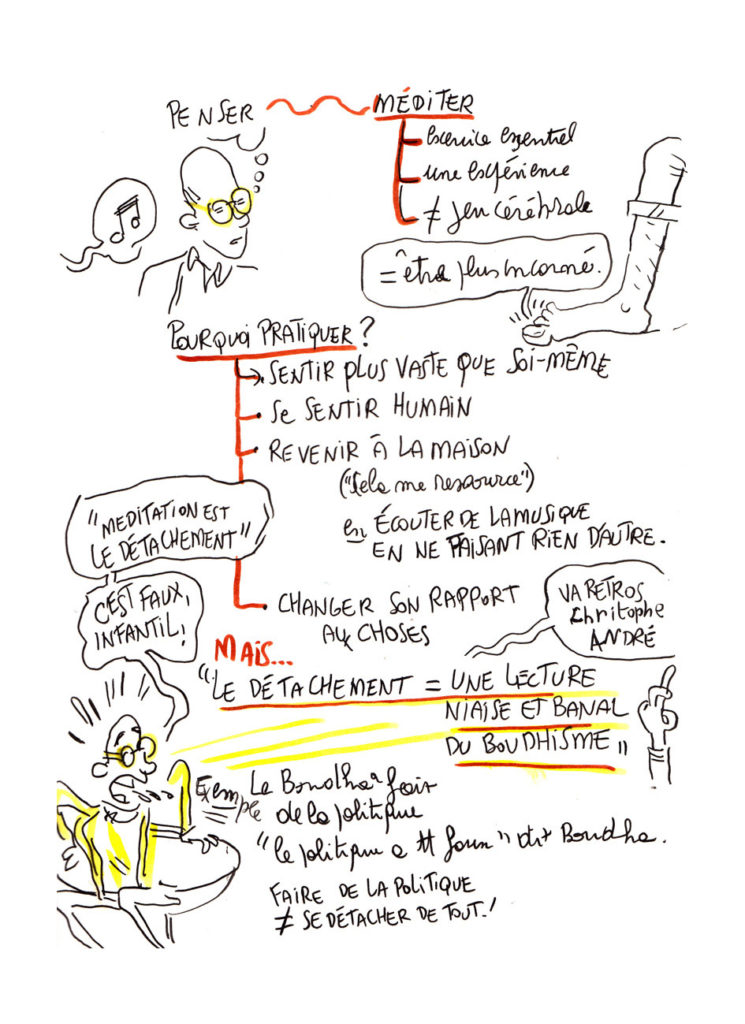 PENSER
MÉDITER
exercice essentiel
une expérience
≠ jeu cérébrale
= être plus incarné.
POURQUOI PRATIQUER ?
SENTIR PLUS VASTE QUE SOI-MÊME
SE SENTIR HUMAIN
REVENIR À LA MAISON
("cela me ressource")
en ÉCOUTER DE LA MUSIQUE
EN NE FAISANT RIEN D'AUTRE.
"MEDITATION EST
LE DÉTACHEMENT"
C'EST FAUX,
INFANTIL !
CHANGER SON RAPPORT
AUX CHOSES
VA RETROS
Christophe
ANDRÉ
MAIS...
"LE DÉTACHEMENT = UNE LECTURE
NIAISE ET BANAL
DU BOUDHISME"
Exemple
Le Boudha fair
de la politique
"le politique a" dit Boudha.
FAIRE DE LA POLITIQUE
≠ SE DÉTACHER DE TOUT !